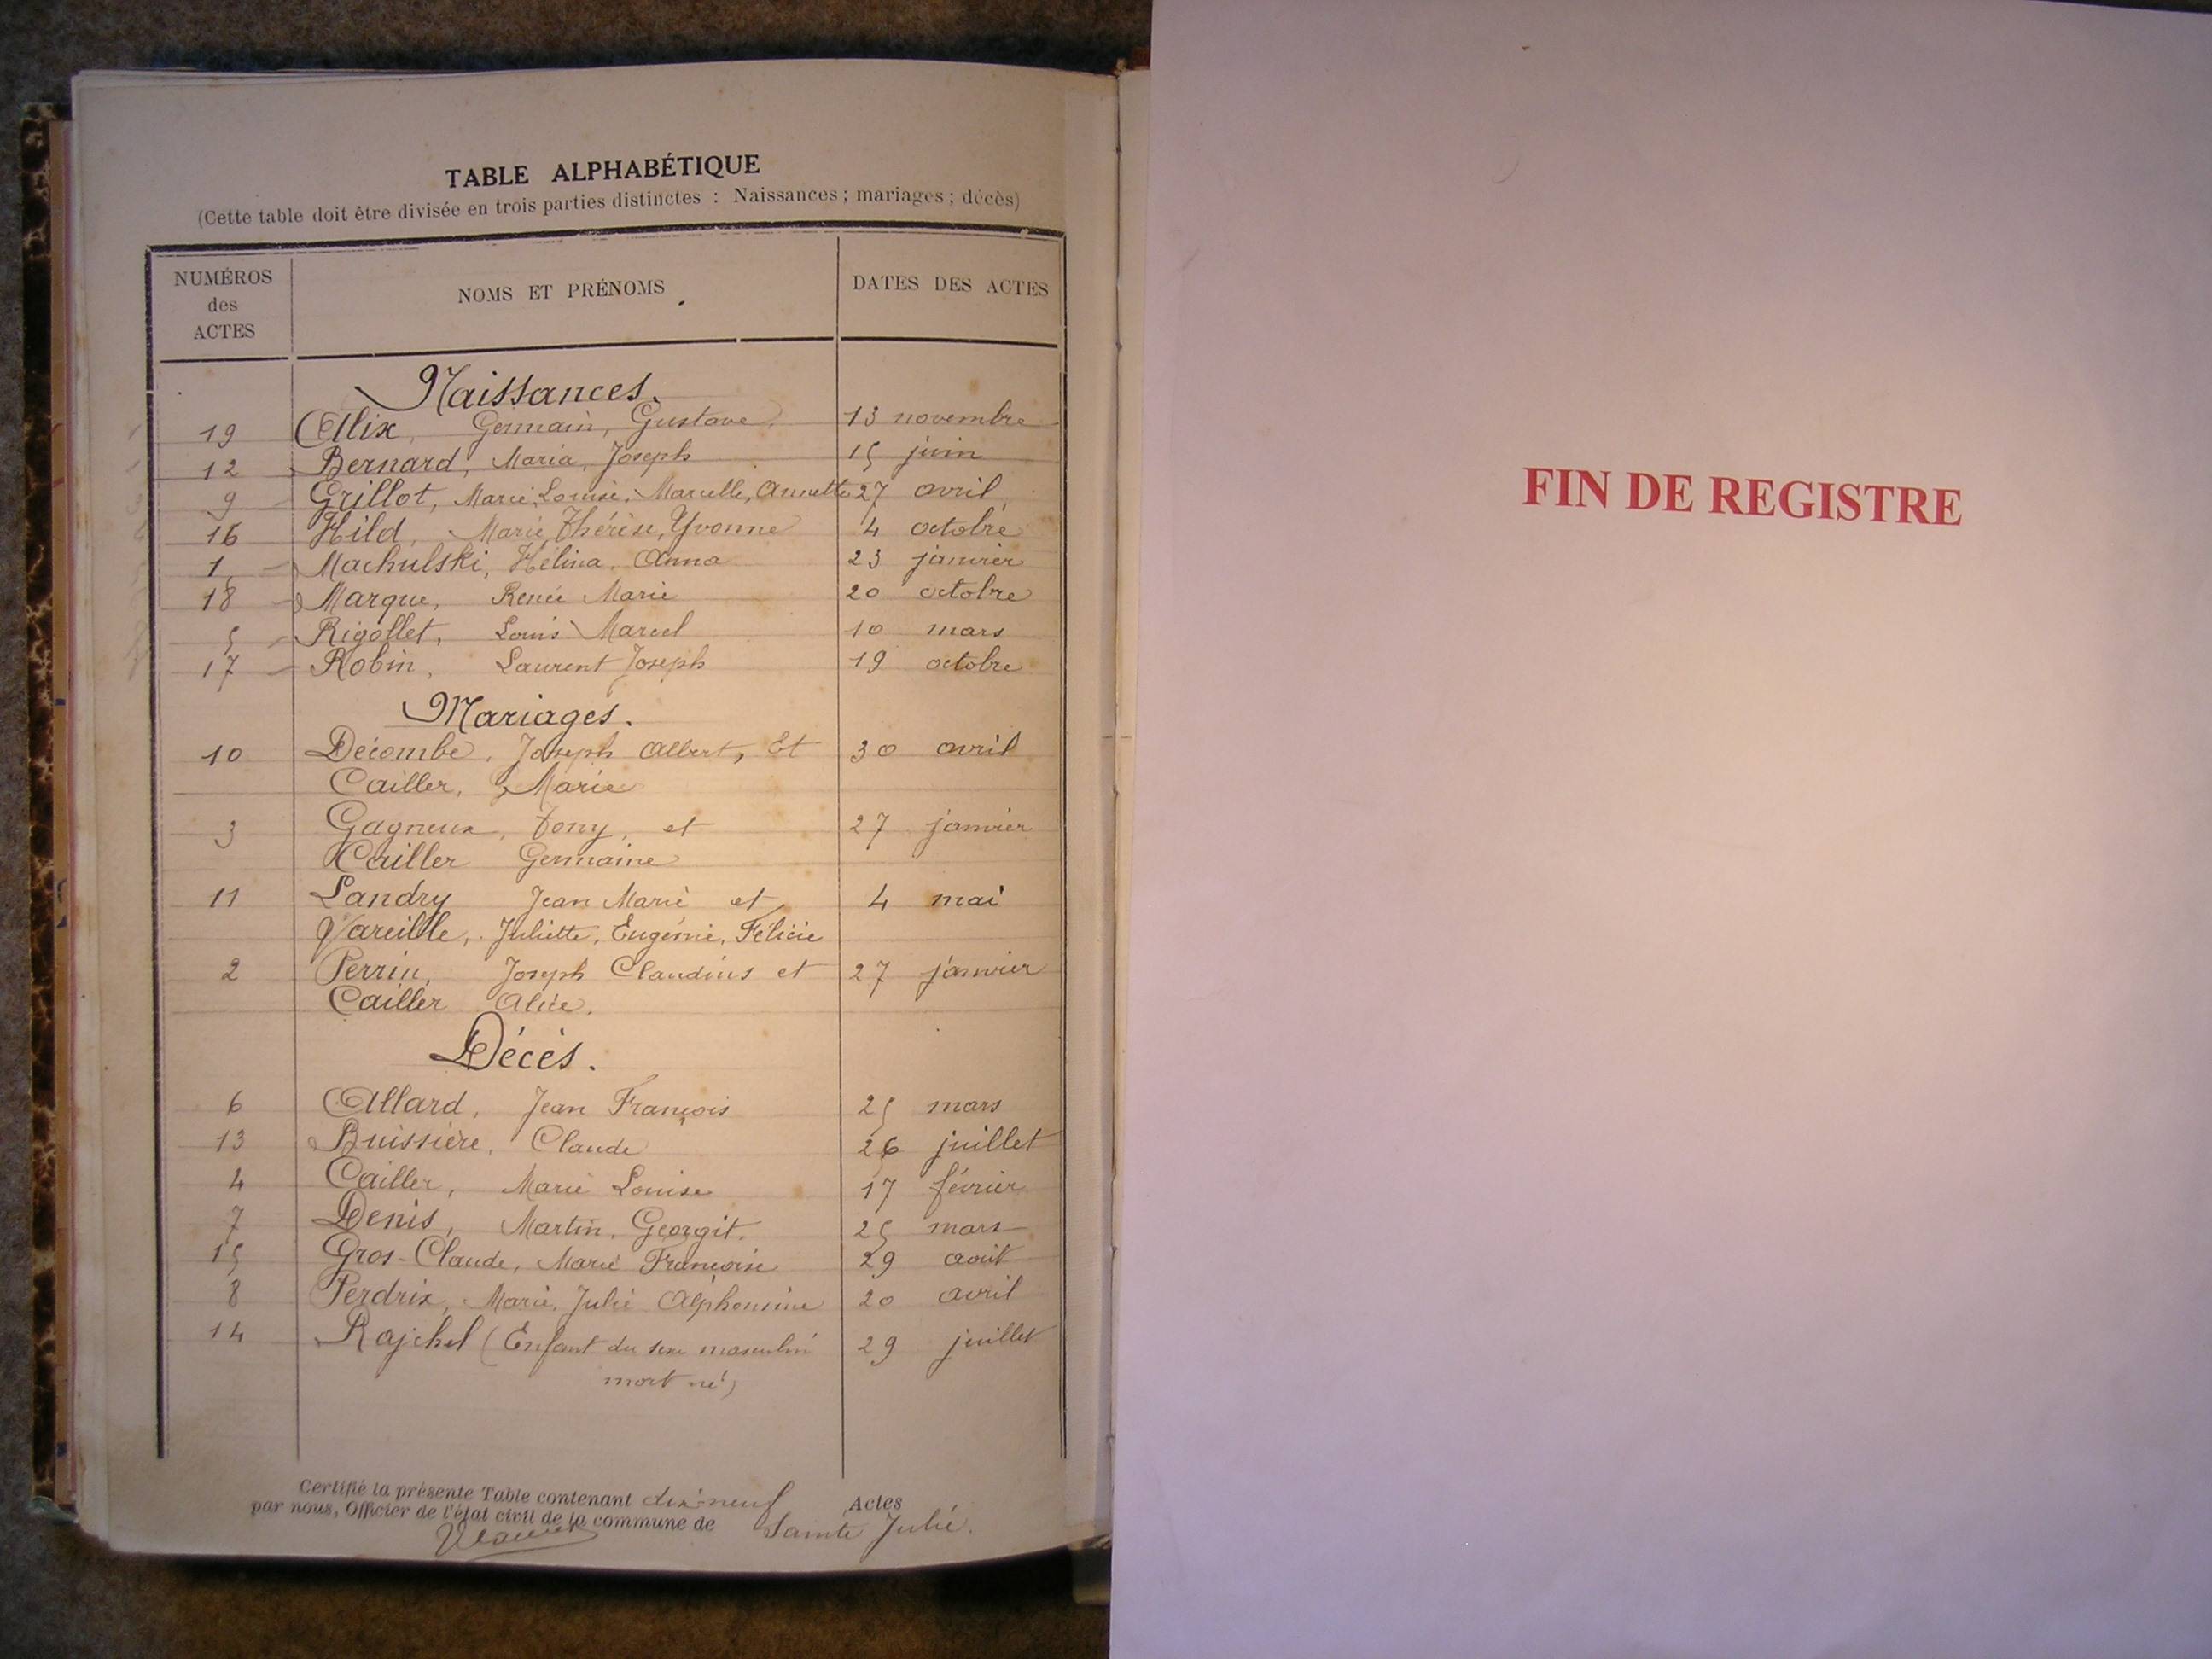 TABLE ALPHABÉTIQUE
(Cette table doit être divisée en trois parties distinctes : Naissances ; mariages ; décès)
NUMÉROS des ACTES NOMS ET PRÉNOMS DATES DES ACTES
Naissances.
19 Allix, Germain, Gustave. 13 novembre
12 Bernard, Maria, Joseph 15 juin
9 Grillot, Marie, Louise, Marcelle, Annette 27 avril
16 Hild, Marie Thérèse, Yvonne 4 octobre
1 Machulski, Hélina, Anna 23 janvier
18 Marque, Renée Marie 20 octobre
5 Rigollet, Louis Marcel 10 mars
17 Robin, Laurent Joseph 19 octobre
Mariages.
10 Décombe, Joseph Albert, Et 30 avril
Cailler, Marie
3 Gagneux, Tony, et 27 janvier
Cailler Germaine
11 Landry Jean Marie et 4 mai
Vareille, Juliette, Eugénie, Félicie
2 Perrin, Joseph Claudius et 27 janvier
Cailler Alice.
Décès.
6 Allard, Jean François 25 mars
13 Buissière, Claude 26 juillet
4 Cailler, Marie Louise 17 février
7 Denis, Martin, Georgit. 25 mars
15 Gros-Claude, Marie Françoise 29 août
8 Perdrix, Marie, Julie Alphonsine 20 avril
14 Rajchel (Enfant du sexe masculin 29 juillet
mort né)
Certifié la présente Table contenant dix-neuf Actes
par nous, Officier de l'état civil de la commune de Sainte Julie.
FIN DE REGISTRE